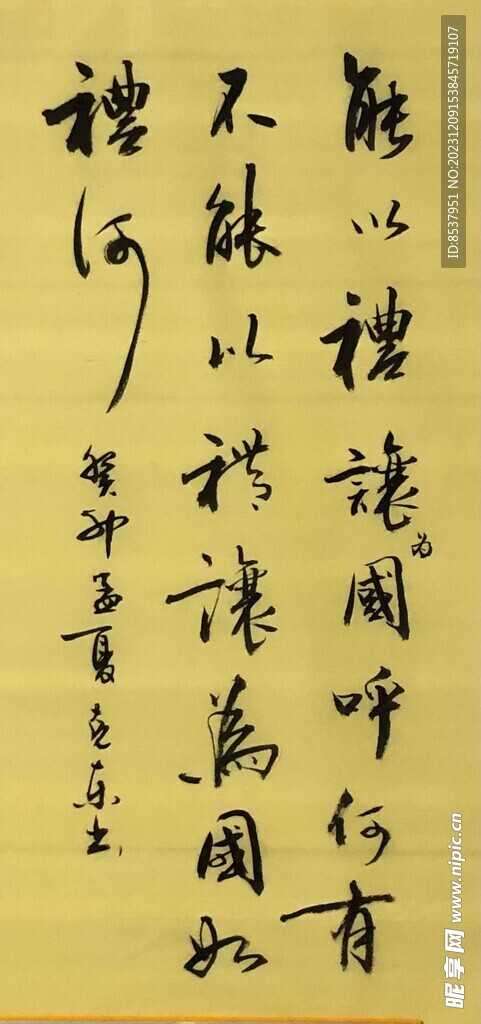 能以禮讓为國呼何有
不能以禮讓為國如
禮何
癸卯孟夏克东书
ID:8537951 NO:20231209153845719107
昵享网 www.nipic.cn